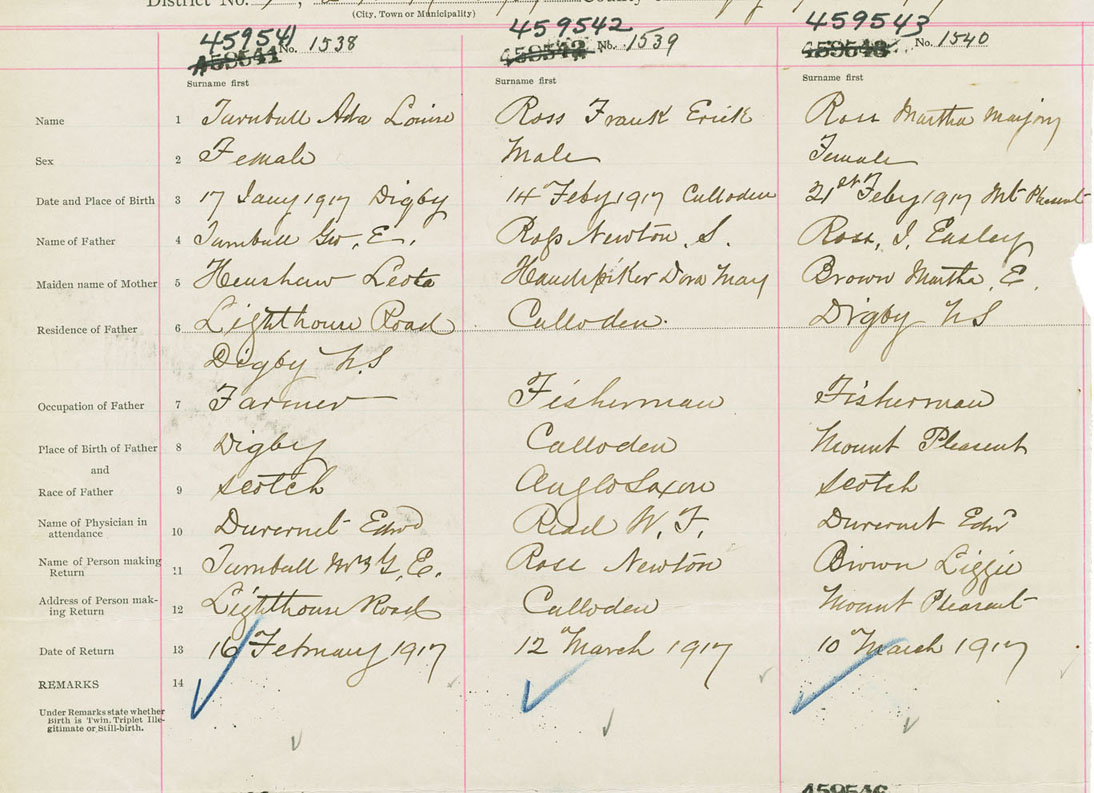 District No.
(City, Town or Municipality)
459541 459542 459543
No. 1538 No. 1539 No. 1540
Surname first Surname first Surname first
Name 1 Turnbull Ada Louise Ross Frank Erick Ross Martha Marjory
Sex 2 Female Male Female
Date and Place of Birth 3 17 Jany 1917 Digby 14" Feby 1917 Culloden 21st Feby 1917 Mt Pleasant
Name of Father 4 Turnbull Geo, E. Ross Newton. S. Ross, J, Easley
Maiden name of Mother 5 Henshaw Leota Handspiker Dora May Brown Martha, E.
Residence of Father 6 Lighthouse Road Culloden. Digby NS
Digby N.S
Occupation of Father 7 Farmer Fisherman Fisherman
Place of Birth of Father 8 Digby Culloden Mount Pleasant
and
Race of Father 9 Scotch Anglo Saxon Scotch
Name of Physician in
attendance 10 Duvernet Edwd Read W. F. Duvernet Edwd
Name of Person making
Return 11 Turnbull Mrs G, E. Ross Newton Brown Lizzie
Address of Person mak-
ing Return 12 Lighthouse Road Culloden Mount Pleasant
Date of Return 13 16 February 1917 12" March 1917 10" March 1917
REMARKS 14
Under Remarks state whether
Birth is Twin, Triplet Ille-
gitimate or Still-birth.